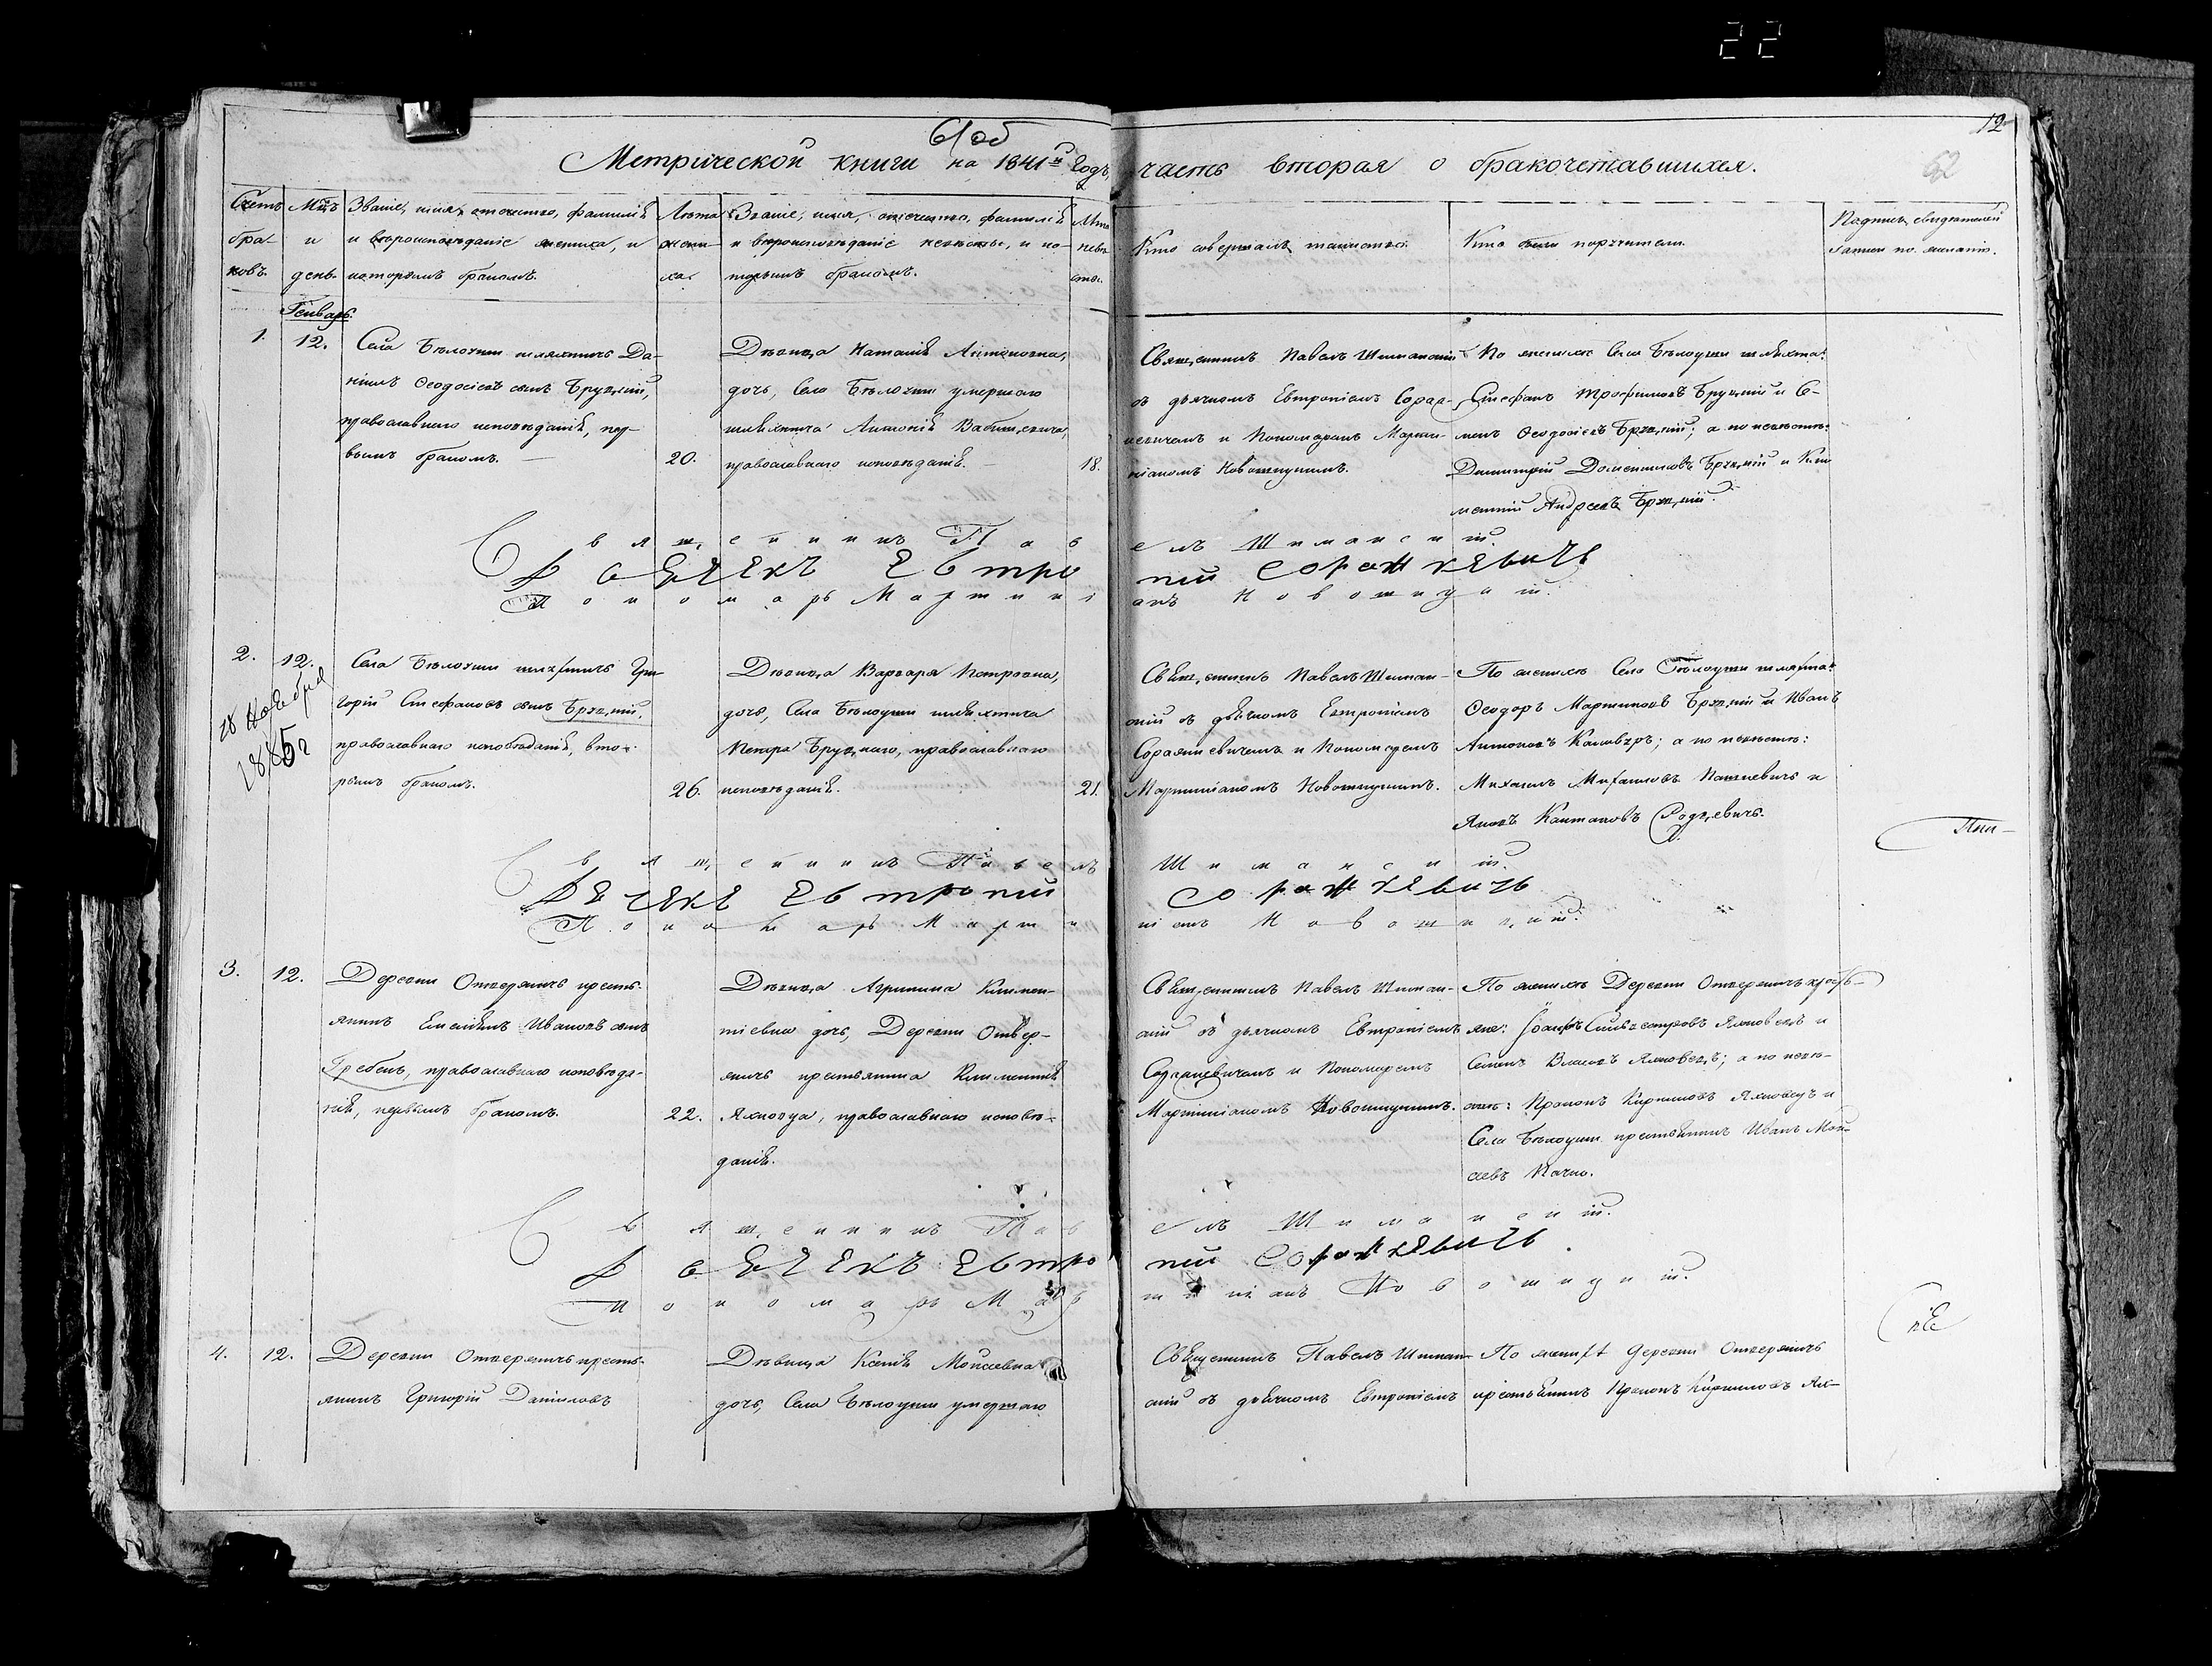 22
61об
12
62
Метрической книги на 1841й Годъ, часть вторая о бракочетавшихся.
Счетъ
бра-
ковъ.
Мцъ
и
день.
Званіе, имя, отечество, фамилія
и вѣроисповѣданіе жениха, и
которымъ бракомъ.
Лѣта
жени-
ха.
Званіе, имя, отечество, фамилія
и вѣроисповѣданіе невѣсты, и ко-
торымъ бракомъ.
Лѣта
невѣ
сты.
Кто совершалъ таинство.
Кто были поручители.
Подпись свидѣтелей
записи по желанію.
Генварь.
1.
12.
Села Бѣлоуши шляхтичъ Да-
ніилъ Ѳеодосіевъ сынъ Бруцкій,
православнаго исповѣданія, пер-
вымъ бракомъ.
20.
Дѣвица Наталія Антоновна,
дочь, Села Бѣлоуши умершаго
шляхтича Антонія
православнаго исповѣданія.
18.
Священникъ Павелъ Шиманскій
съ дьячкомъ Евтропіемъ Сораж-
кевичемъ и Пономаремъ Марти-
ніаномъ Новошицкимъ.
По женихѣ Села Бѣлоуши шляхта:
Стефанъ Трофимовъ Бруцкій и Се-
менъ Ѳеодосіевъ Бруцкій; а по невѣстѣ:
Димитрій Доментиновъ Бруцкій и Кли
ментій Андреевъ Бруцкій.
Священникъ Павелъ Шиманскій.
Дьячекъ Евтропій Соражкевичъ
Пономарь Мартиніанъ Новошицкій.
2.
12.
18 Ноября
1885 г
Села Бѣлоуши шляхтичъ Гри-
горій Стефановъ сынъ Бруцкій,
православнаго исповѣданія, вто-
рымъ бракомъ.
26.
Дѣвица Варвара Петровна,
дочь, Села Бѣлоуши шляхтича
Петра Бруцкаго, православнаго
исповѣданія.
21.
Священникъ Павелъ Шиман-
скій съ дьячкомъ Евтропіемъ
Соражкевичемъ и Пономаремъ
Мартиніаномъ Новошицкимъ.
По женихѣ Села Бѣлоуши шляхта:
Ѳеодоръ Мартиновъ Бруцкій и Иванъ
Антоновъ; а по невѣстѣ:
Михаилъ Михайловъ и
Яковъ
Священникъ Павелъ Шиманскій.
Дьячекъ Евтропий Соражкевичъ
Пономарь Мартиніанъ Новошицкій.
3.
12.
Деревни Отвержичъ кресть-
янинъ Емеліянъ Ивановъ сынъ
Гребень, православнаго исповѣда-
нія, первымъ бракомъ.
22.
Дѣвица Агрипина Климен-
тіевна дочь, Деревни Отвер-
жичъ крестьянина Климентія
Яхновца, православнаго исповѣ-
данія.
Священникъ Павелъ Шиман-
скій съ дьячкомъ Евтропіемъ
Соражкевичемъ и Пономаремъ
Мартиніаномъ Новошицкимъ.
По женихѣ Деревни Отвержичъ кресть-
яне: Іосифъ Сильвестровъ Яхновецъ и
Семенъ Власовъ Яхновецъ; а по невѣ-
стѣ: Прокопъ Кириловъ Яхновецъ и
Села Бѣлоуши крестьянинъ Иванъ Мои-
сеевъ
Священникъ Павелъ Шиманскій.
Дьячекъ Евтропий Соражкевичъ
Пономарь Мартиніанъ Новошицкій.
4.
12.
Деревни Отвержичъ кресть-
янинъ Григорій Даниловъ
Дѣвица Ксенія Моисеевна
дочь, Села Бѣлоуши умершаго
Священникъ Павелъ Шиман-
скій съ дьячкомъ Евтропіемъ
По женихѣ деревни Отвержичъ
крестьянинъ Прокопъ Кириловъ Ях-